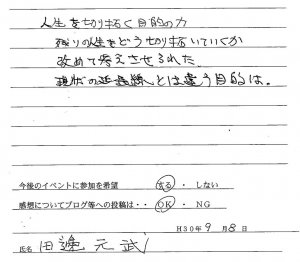 人生を切り拓く目的の力
残りの人生をどう切り拓いていくか
改めて考えさせられた。
現状の延長線とは違う目的は。
今後のイベントに参加を希望 する ・ しない
感想についてブログ等への投稿は・・ OK ・ NG
H30年 9 月 8 日
氏名 田邊 元武